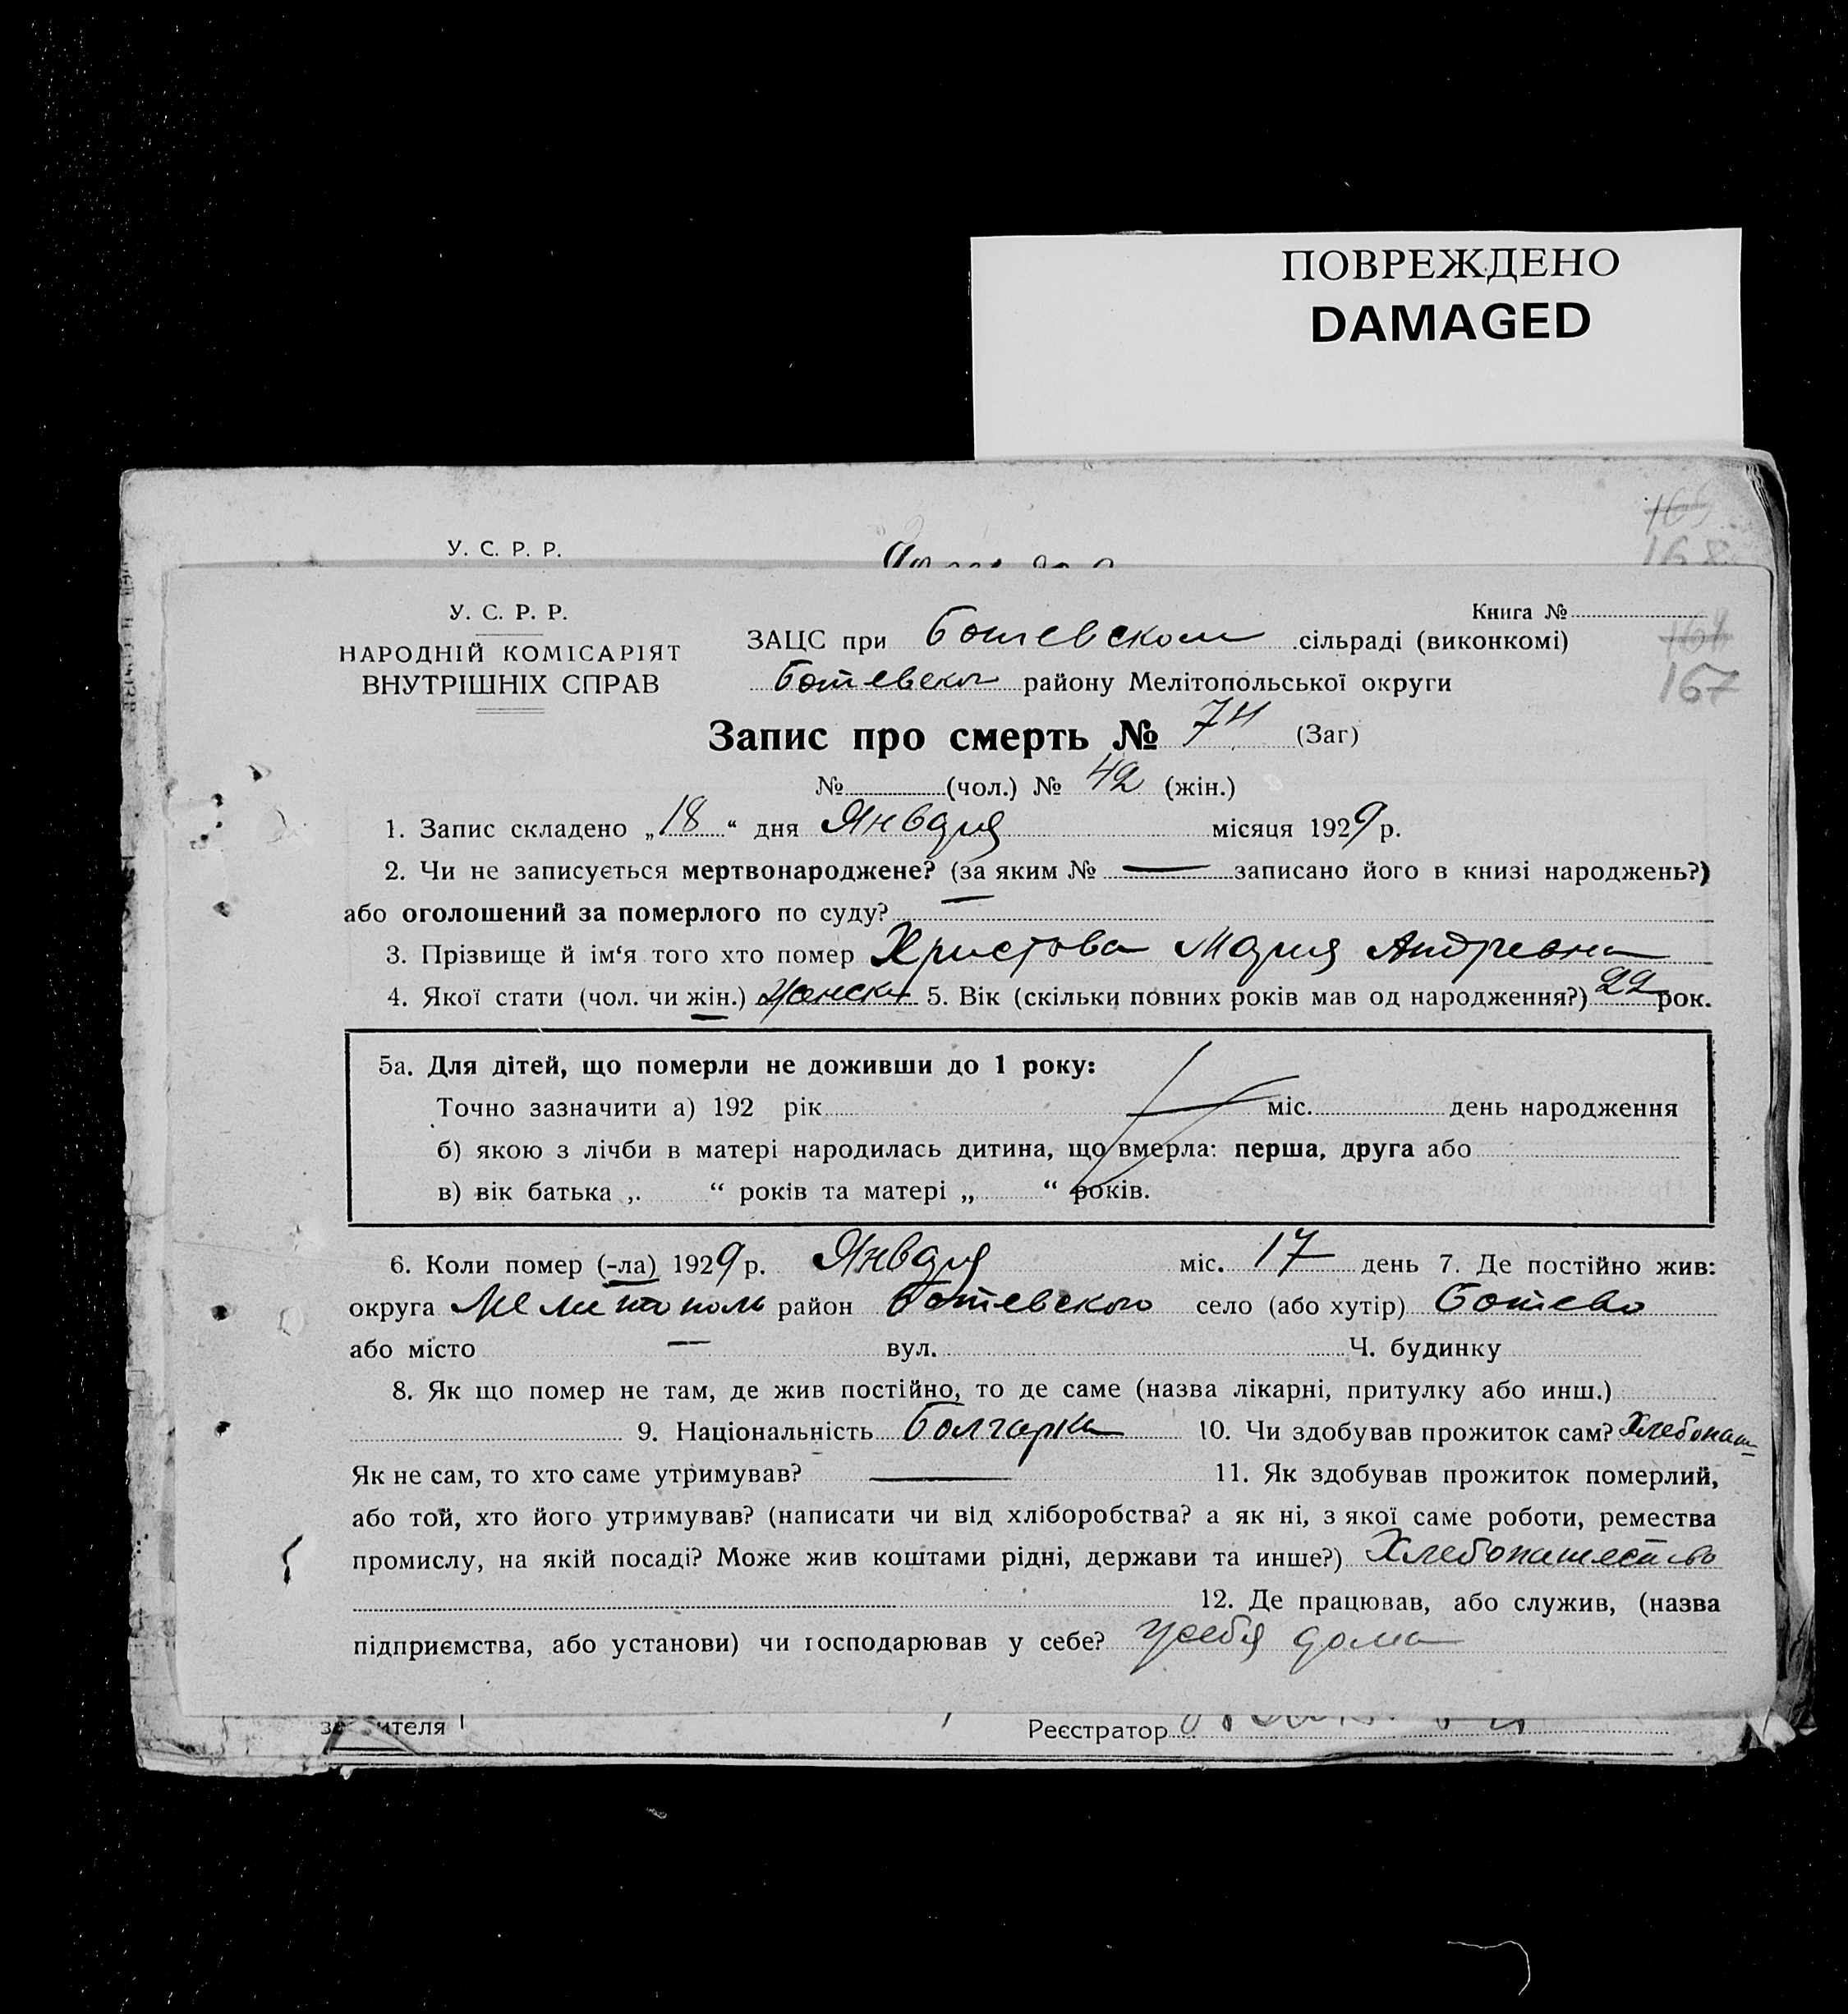 ПОВРЕЖДЕНО
DAMAGED
У. С. Р. Р.
168
У. С. Р. Р.
НАРОДНІЙ КОМІСАРІЯТ
ВНУТРІШНІХ СПРАВ
Книга №
ЗАЦС при Ботевском сільраді (виконкомі)
167
Ботевског району Мелітопольської округи
Запис про смерть № 74 (Заг)
№ (чол.) № 42 (жін.)
1. Запис складено „18“ дня Января місяця 1929 р.
2. Чи не записується мертвонароджене? (за яким № — записано його в книзі народжень?)
або оголошений за померлого по суду?
3. Прізвище й ім‘я того хто помер Христова Мария Андреевна
4. Якої стати (чол. чи жін.) Женска 5. Вік (скільки повних років мав од народження?) 22 рок.
5а. Для дітей, що померли не доживши до 1 року:
Точно зазначити а) 192 рік міс. день народження
б) якою з лічби в матері народилась дитина, що вмерла: перша, друга або
в) вік батька „ “ років та матері „ “ років.
6. Коли помер (-ла) 1929 р. Января міс. 17 день 7. Де постійно жив:
округа Мелитополь район Ботевского село (або хутір) Ботево
або місто — вул. Ч. будинку
8. Як що помер не там, де жив постійно, то де саме (назва лікарні, притулку або инш.)
9. Національність Болгарка 10. Чи здобував прожиток сам? Хлебопаш
Як не сам, то хто саме утримував? — 11. Як здобував прожиток померлий,
або той, хто його утримував? (написати чи від хліборобства? а як ні, з якої саме роботи, ремества
промислу, на якій посаді? Може жив коштами рідні, держави та инше?) Хлебопашество
12. Де працював, або служив, (назва
підприємства, або установи) чи господарював у себе? у себя дома
Реєстратор